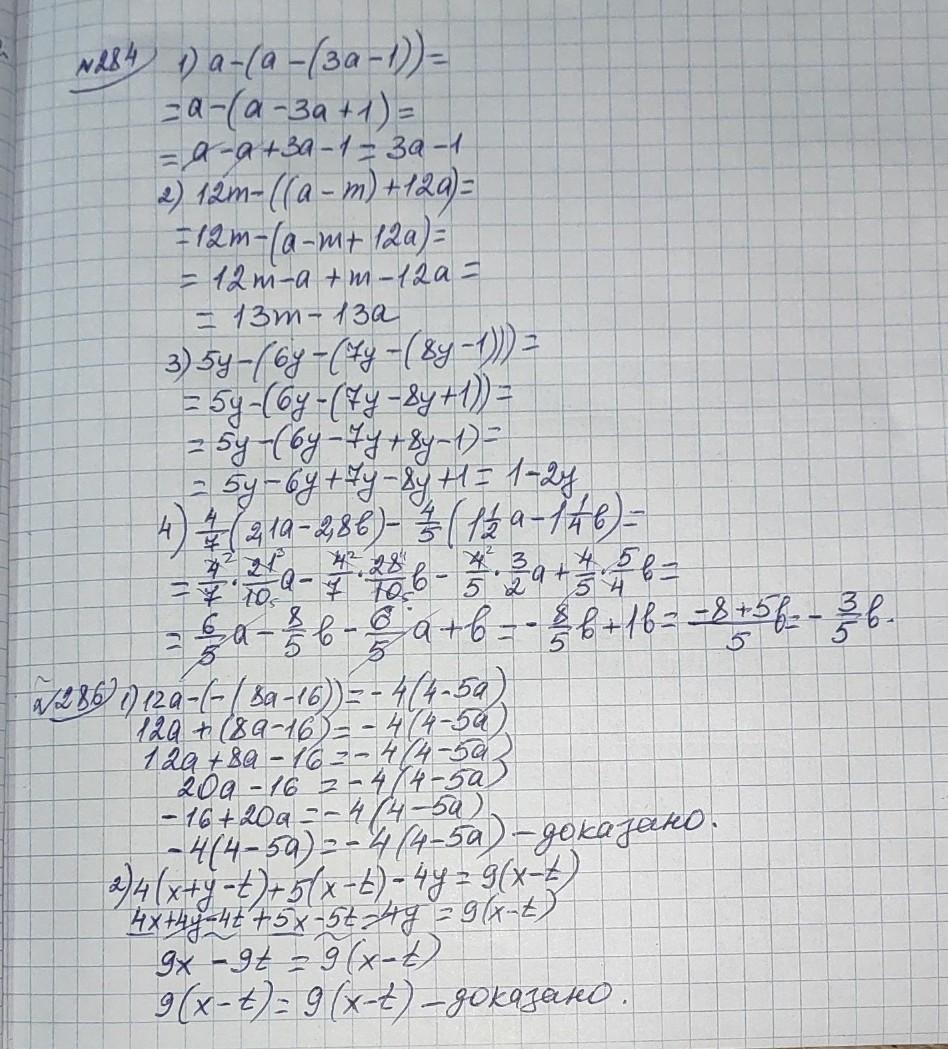 №284 1) a-(a-(3a-1))=
=a-(a-3a+1)=
=a-a+3a-1=3a-1
2) 12m-((a-m)+12a)=
=12m-(a-m+12a)=
=12m-a+m-12a=
=13m-13a
3) 5y-(6y-(7y-(8y-1)))=
=5y-(6y-(7y-8y+1))=
=5y-(6y-7y+8y-1)=
=5y-6y+7y-8y+1=1-2y
4) 4/7(2,1a-2,8b)-4/5(1 1/2 a-1 1/4 b)=
=4/7·21/10a-4/7·28/10b-4/5·3/2a+4/5·5/4b=
=6/5a-8/5b-6/5a+b=-8/5b+1b=(-8+5b)/5=-3/5b.
№286 1) 12a-(-(8a-16))=-4(4-5a)
12a+(8a-16)=-4(4-5a)
12a+8a-16=-4(4-5a)
20a-16=-4(4-5a)
-16+20a=-4(4-5a)
-4(4-5a)=-4(4-5a) - доказано.
2) 4(x+y-t)+5(x-t)-4y=9(x-t)
4x+4y-4t+5x-5t-4y=9(x-t)
9x-9t=9(x-t)
9(x-t)=9(x-t) - доказано.